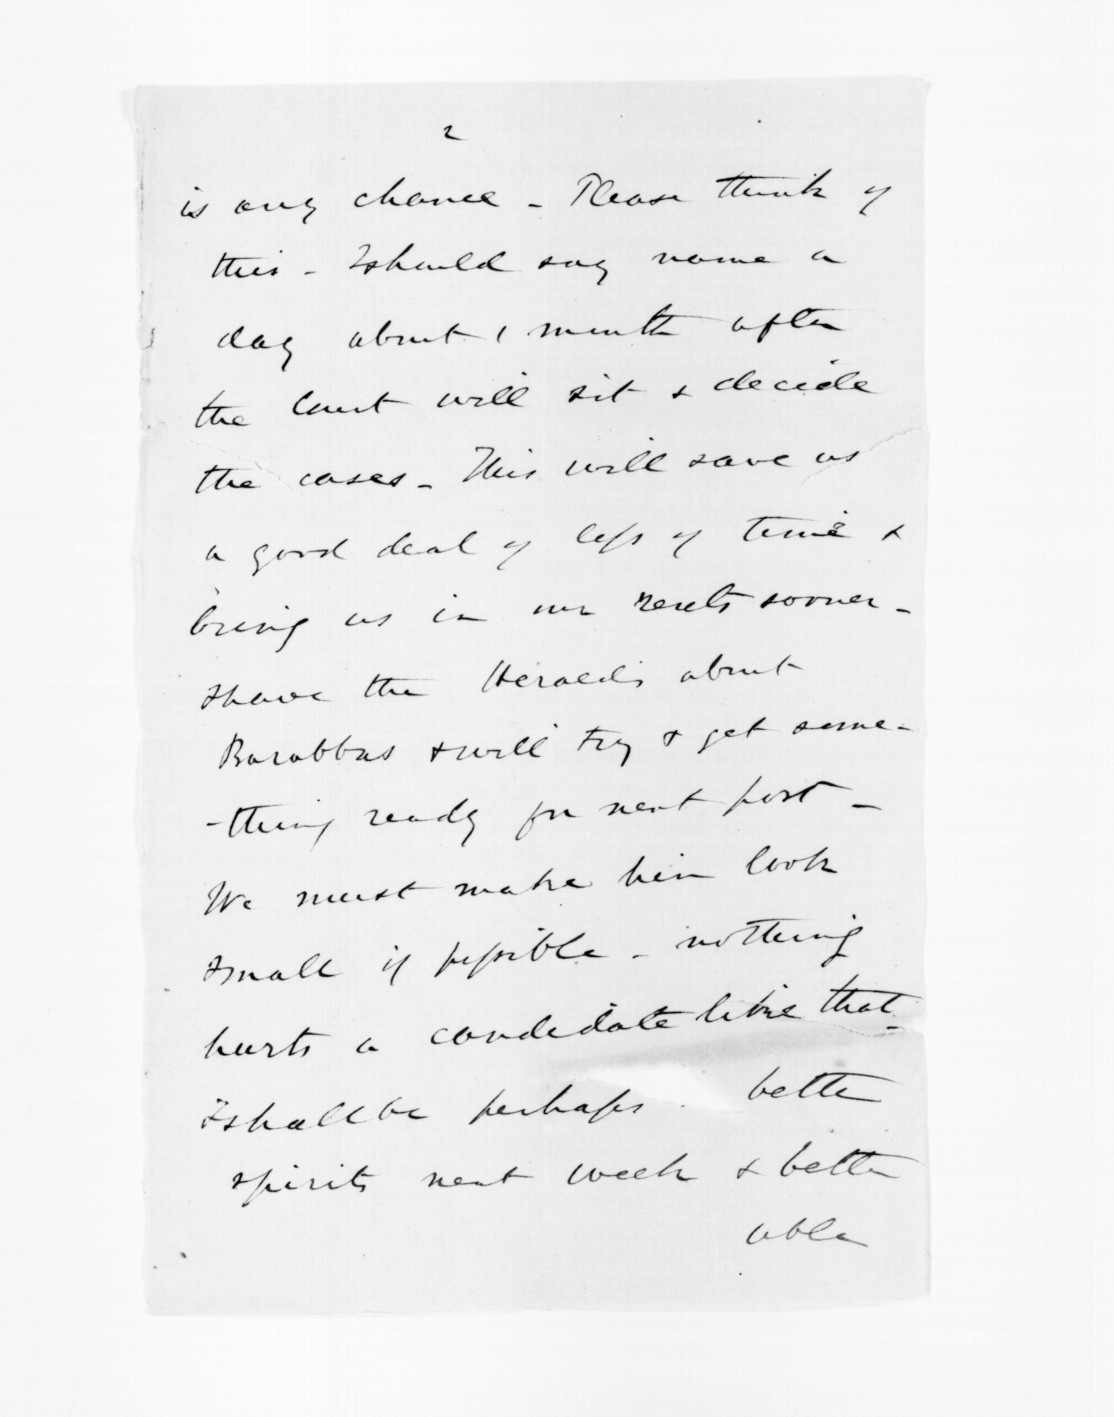 2
is any chance - Please think of
this - I should say name a
day about 1 month after
the Court will sit & decide
the cases - This will save us
a good deal of loss of time &
bring us in our rents sooner -
I have the Heralds about
Barabbas & will try & get some-
-thing ready for next post -
We must make him look
small if possible - nothing
hurts a candidate like that -
I shall be perhaps better
spirits next week & better
able